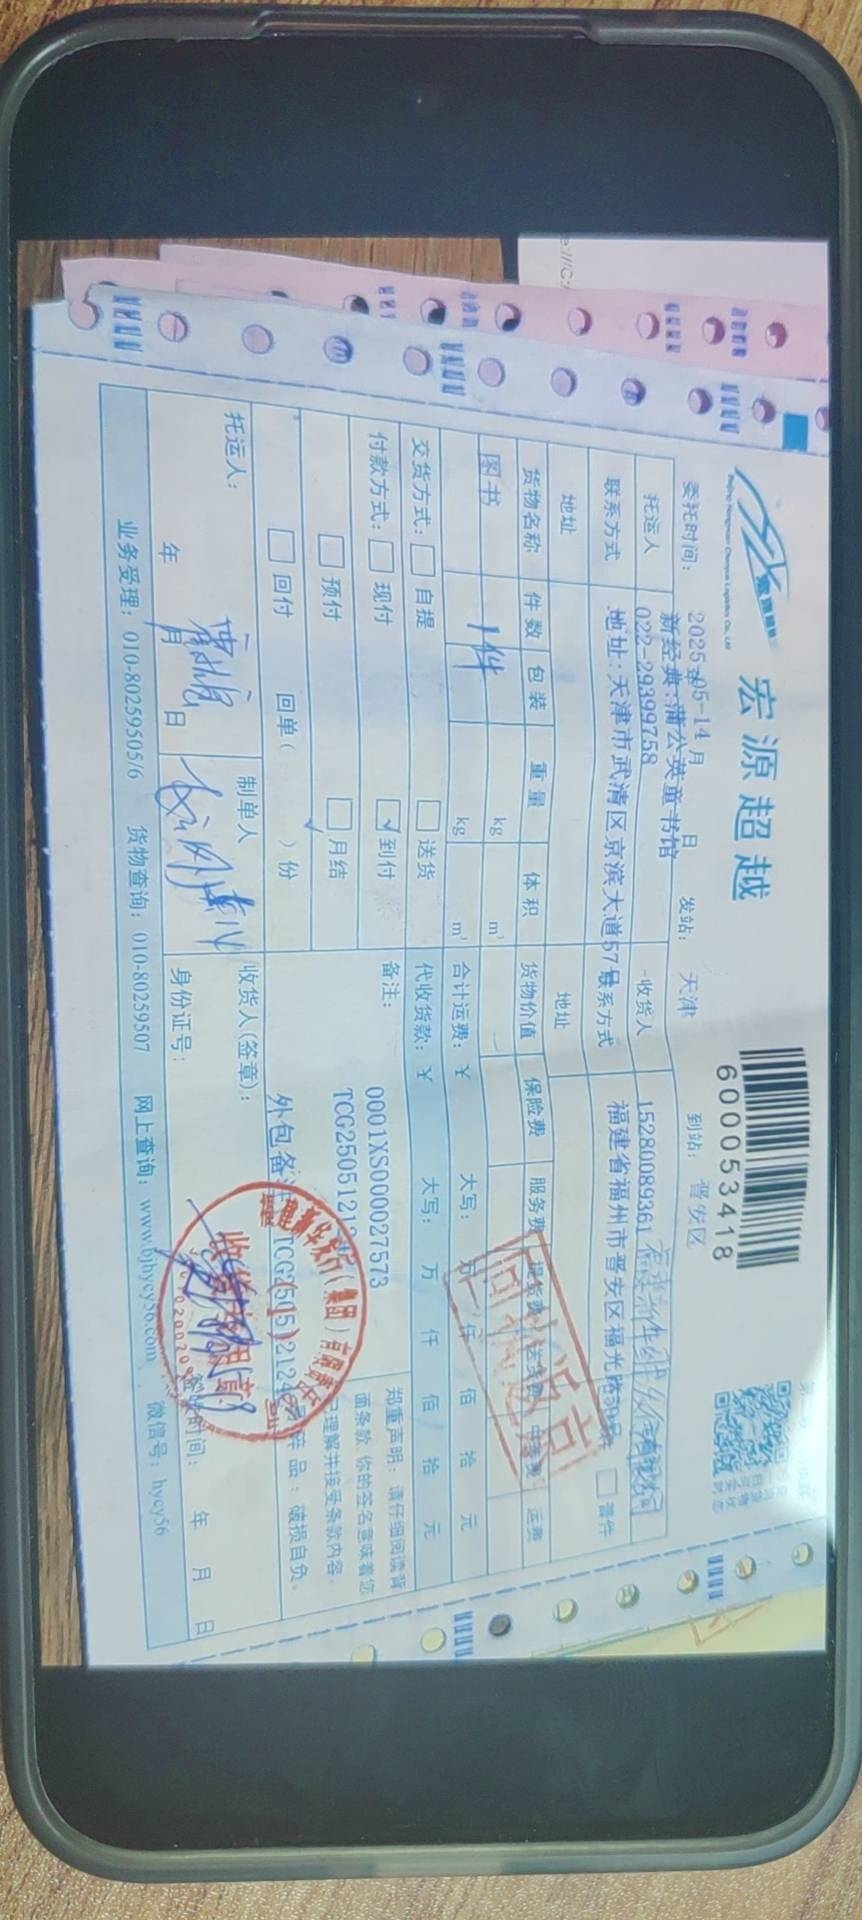 宏源超越
6000053418
委托时间： 2025年05-14月 日 发站： 天津 到站： 晋安区
托运人 新经典:蒲公英童书馆 收货人
022-29399758 15280089361
联系方式 地址:天津市武清区京滨大道57号 联系方式 福建省福州市晋安区福光路
地址 地址
货物名称 件数 包装 重量 体积 货物价值 保险费 服务费 运费
图书 1件 kg m³
kg m³ 合计运费：￥ 大写： 万 仟 佰 拾 元
交货方式： 自提 送货 代收货款：￥ 大写： 万 仟 佰 拾 元
付款方式： 现付 ✓到付 备注：
预付 月结
回付 回单（ ）份
0001XS000027573
外包备注
郑重声明：请仔细阅读背
面条款，你的签名意味着您
理解并接受条款内容。
破损自负。
托运人： 制单人 收货人(签章)：
年 月 日 身份证号： 时间： 年 月 日
业务受理：010-80259505/6 货物查询：010-80259507 网上查询：www.bjhycy56.com 微信号：hycy56